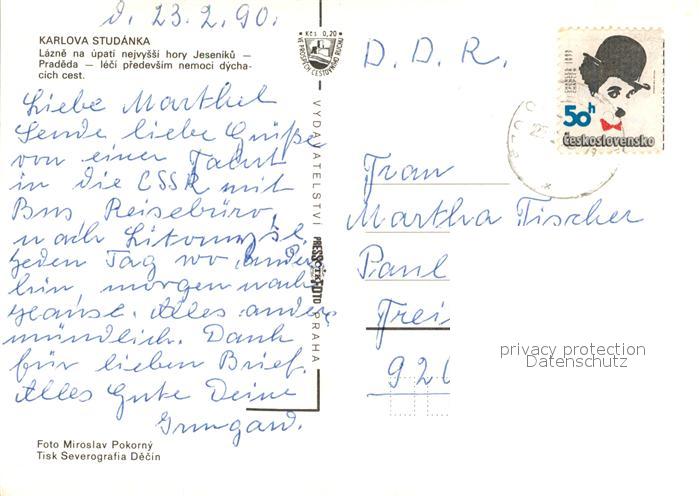 d. 23.2.90.
KARLOVA STUDÁNKA
Lázně na úpatí nejvyšší hory Jeseníků –
Praděda – léčí především nemoci dýcha-
cích cest.
Liebe Marthel
Sende liebe Grüße
von einer Fahrt
in die CSSR mit
Bus Reisebüro,
nach Litomyšl,
jeden Tag wo ander
hin, morgen nach
Hause. Alles andere
mündlich. Dank
für lieben Brief.
Alles Gute Deine
Irmgard.
Foto Miroslav Pokorný
Tisk Severografia Děčín
Kčs 0,20
VE PROSPĚCH CESTOVNÍHO RUCHU
VYDAVATELSTVÍ PRESSFOTO PRAHA
D. D. R.
50h
Československo
Frau
Martha Fischer
Paul
Frei
920
privacy protection
Datenschutz